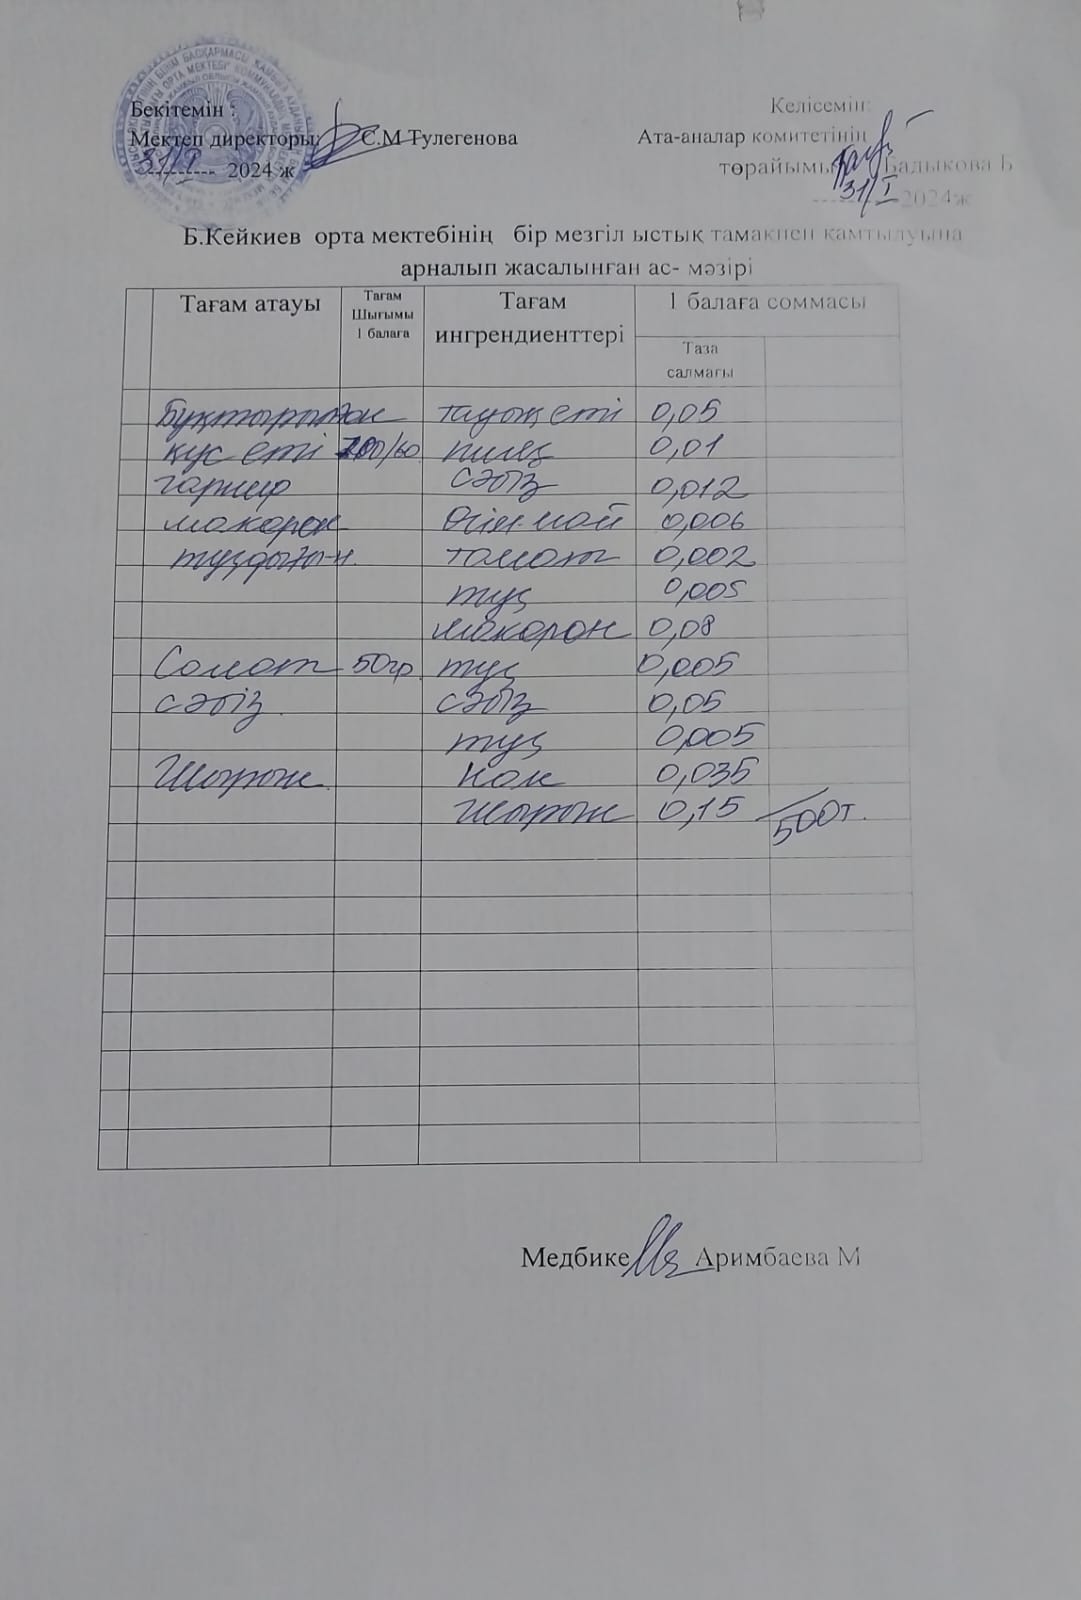 Бекітемін :
Келісемін:
Мектеп директоры: С.М Тулегенова
Ата-аналар комитетінің
31/I 2024 ж
төрайымы Бадыкова Б
31/I 2024ж
Б.Кейкиев орта мектебінің бір мезгіл ыстық тамақпен қамтылуына
арналып жасалынған ас- мәзірі
Тағам атауы
Тағам Шығымы 1 балаға
Тағам ингрендиенттері
1 балаға соммасы
Таза салмағы
Бұқтырылған тауық еті 0,05
құс еті 200/60 пияз 0,01
гарнир сәбіз 0,012
макарон Өсім-май 0,006
тұздығы-н. томат 0,002
тұз 0,005
макорон 0,08
Салат 50гр. тұз 0,005
сәбіз сәбіз 0,05
тұз 0,005
Шырын нан 0,035
шырын 0,15 500т.
Медбике Аримбаева М